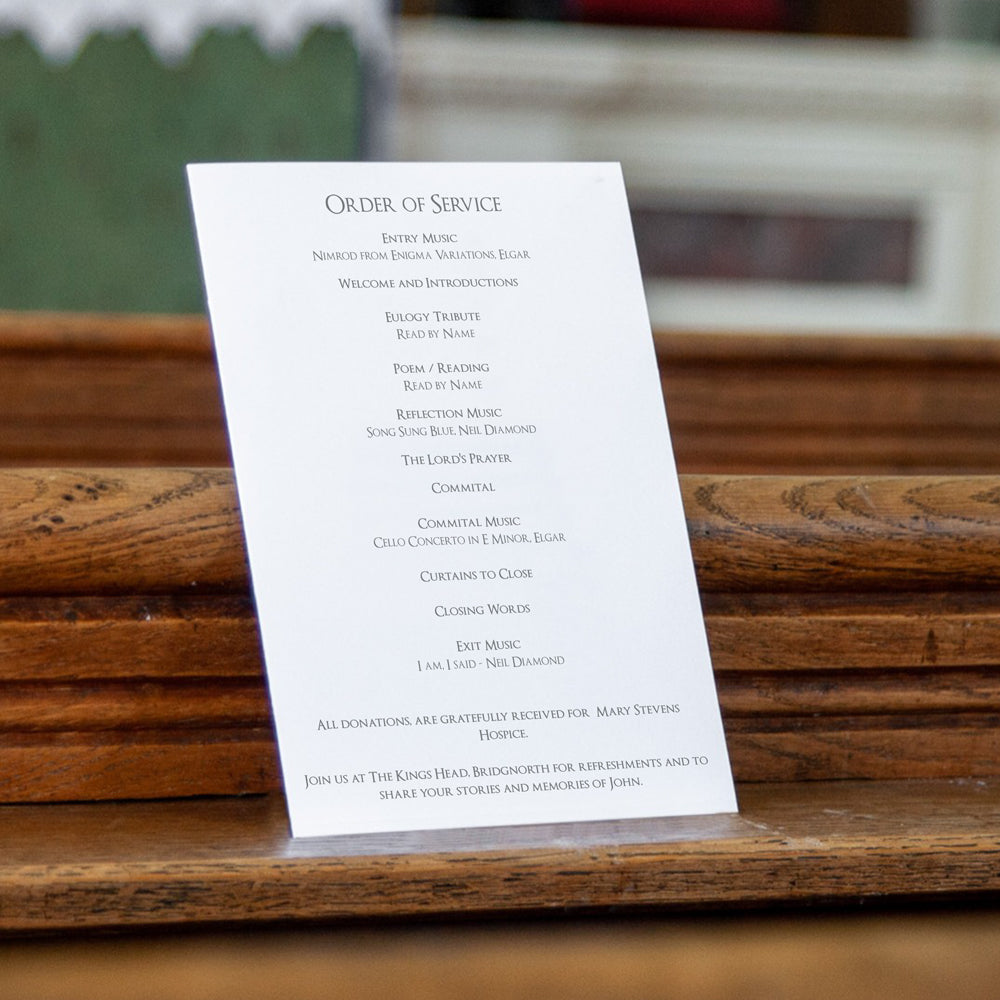 Order of Service
Entry Music
Nimrod from Enigma Variations, Elgar
Welcome and Introductions
Eulogy Tribute
Read by Name
Poem / Reading
Read by Name
Reflection Music
Song Sung Blue, Neil Diamond
The Lord's Prayer
Commital
Commital Music
Cello Concerto in E Minor, Elgar
Curtains to Close
Closing Words
Exit Music
I am, I said - Neil Diamond
All donations, are gratefully received for Mary Stevens
Hospice.
Join us at The Kings Head, Bridgnorth for refreshments and to
share your stories and memories of John.